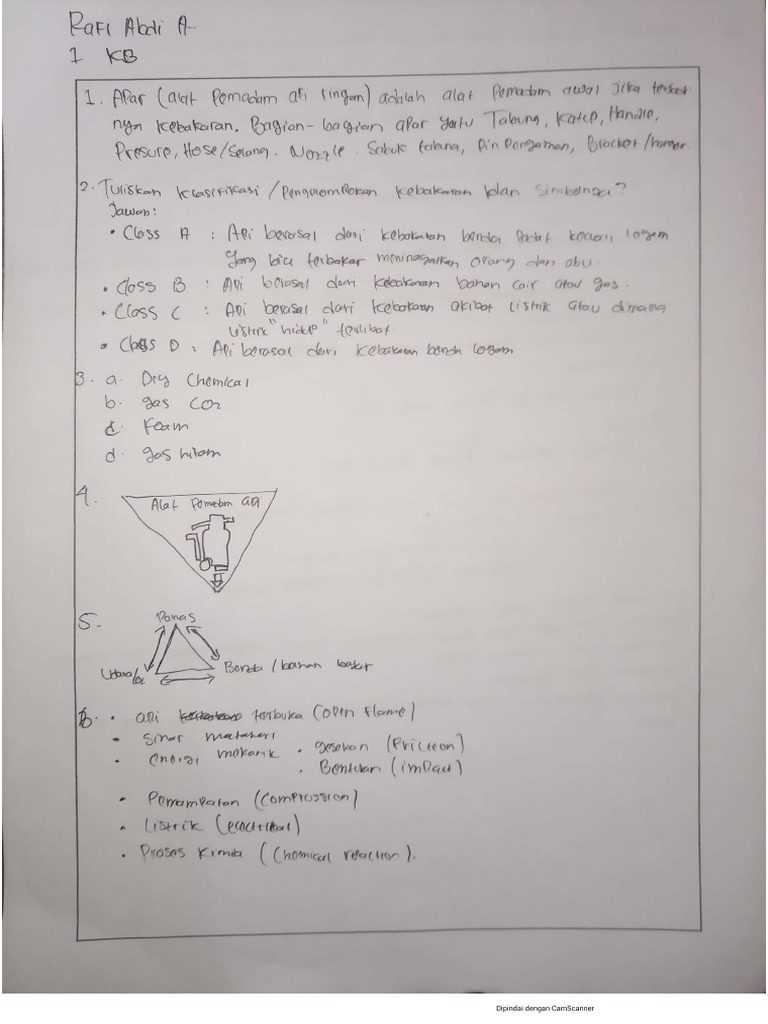 Rafi Abdi A.
1 KB
1. APAR (alat Pemadam api ringan) adalah alat Pemadam awal jika terkad
nya kebakaran. Bagian-bagian apar yaitu Tabung, Katup, Handle,
Presure, Hose/Selang. Nozzle. Sabuk tabung, Pin Pengaman, Bracket/hanger
2. Tuliskan klasifikasi/Pengelompokan kebakaran dan simbolnya?
Jawab:
• Class A : Api berasal dari kebakaran benda Padat kecuali logam
yang bila terbakar meninggalkan arang dan abu.
• Class B : Api berasal dari kebakaran bahan cair atau gas.
• Class C : Api berasal dari kebakaran akibat listrik atau dimana
listrik "hidup" terlibat.
• Class D : Api berasal dari kebakaran benda logam
3. a. Dry Chemical
b. gas CO2
c. Foam
d. gas halam
4.
Alat Pemadam api
5.
Panas
Benda / bahan bakar
6. • api terbuka (open flame)
• Sinar matahari
• energi mekanik • gesekan (Friction)
• Benturan (impact)
• Pemampatan (Compression)
• Listrik (electrical)
• Proses Kimia (Chemical reaction).
Dipindai dengan CamScanner